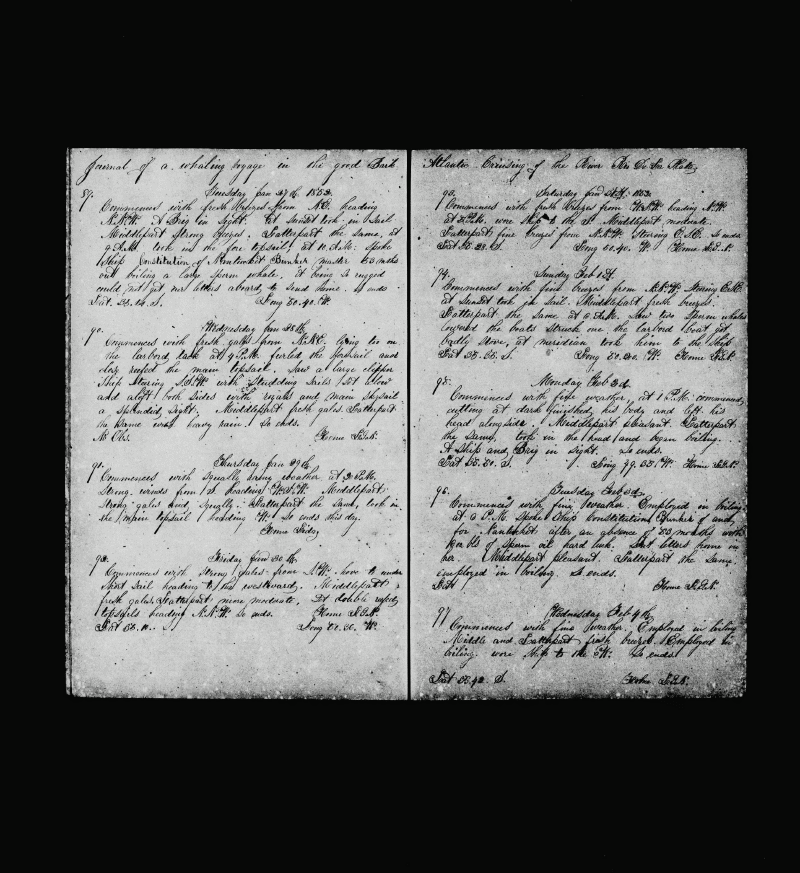 Journal of a whaling voyage in the good Bark
89. Tuesday Jan 27th 1852
Commences with fresh breezes from N.E. heading
N.N.W. A Brig in Sight. at Sunset took in Sail
Middlepart Strong breezes. Latterpart the Same, at
9 A.M. took in the fore topsail, at 10 A.M. spoke
Ship Constitution of Nantucket Bunker master 53 months
out boiling a large Sperm whale, it being So rugged
could not get our letters aboard to Send home. So ends
Lat. S. Long 50.40. W.
90. Wednesday Jan 28th
Commences with fresh gales from N.N.E. lying too on
the larbord tack at 9 P.M. furled the foresail and
close reefed the main topsail. Saw a large clipper
Ship Steering S.S.W. with Studding Sails Set alow
and aloft both Sides with royals and main Skysail
a Splendid Sight. Middlepart fresh gales. Latterpart
the Same with heavy rain. So ends.
No Obs.
91. Thursday Jan 29th
Commences with Squally rainy weather at 3 P.M.
Strong winds from S. heading W.S.W. Middlepart
Strong gales and Squally. Latterpart the Same, took in
the main topsail heading W. So ends this day.
92. Friday Jan 30th
Commences with Strong gales from S.W. hove to under
Short Sail heading to the westward. Middlepart
fresh gales. Latterpart more moderate, Set double reefed
topsails heading N.N.W. So ends.
Lat 36.10. Long W.
Atlantic Cruising of the River Rio De La Plate
93. Saturday Jan 31st 1852
Commences with fresh breezes from heading N.W.
at 3 P.M. wore Ship to the Middlepart moderate.
Latterpart fine breezes from N.N.W. Steering E.S.E. So ends
Lat S. Long 50.40. W.
94. Sunday Feb 1st
Commences with fine breezes from N.N.W. Steering
at Sunset took in Sail. Middlepart fresh breezes.
Latterpart the Same at A.M. Saw two Sperm whales
lowered the boats Struck one the larbord boat got
badly Stove, at meridian took him to the Ship
Lat S. Long W.
95. Monday Feb 2d
Commences with fine weather, at 1 P.M. commenced
cutting at dark finished his body and left his
head alongside. Middlepart pleasant. Latterpart
the Same, took in the head and began boiling.
A Ship and Brig in Sight. So ends.
Lat S. Long W.
96. Tuesday Feb 3d
Commences with fine weather Employed in boiling
at P.M. Spoke Ship Constitution Bunker of and
for Nantucket after an absence of 53 months with
bbls of Sperm oil hard luck. Sent letters home in
her. Middlepart pleasant. Latterpart the Same
employed in boiling. So ends.
Lat
97 Wednesday Feb 4th
Commences with fine weather. Employed in boiling
Middle and Latterpart fresh breezes. Employed in
boiling. wore Ship to the W. So ends
Lat 35.42 S.